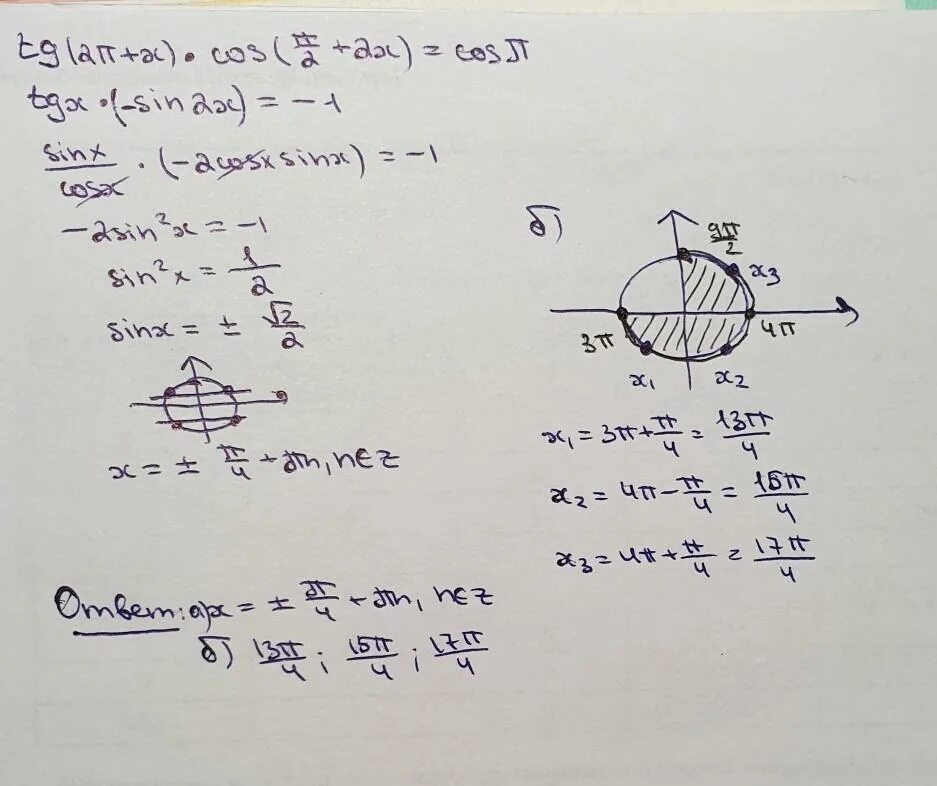 tg(2π+x)·cos(π/2+2x)=cosπ
tgx·(-sin2x)=-1
sinx/cosx·(-2cosxsinx)=-1
-2sin²x=-1
sin²x=1/2
sinx=±√2/2
x=±π/4+πn, n∈Z
б)
9π/2
x₃
3π
4π
x₁
x₂
x₁=3π+π/4=13π/4
x₂=4π-π/4=15π/4
x₃=4π+π/4=17π/4
Ответ: а) x=±π/4+πn, n∈Z
б) 13π/4; 15π/4; 17π/4